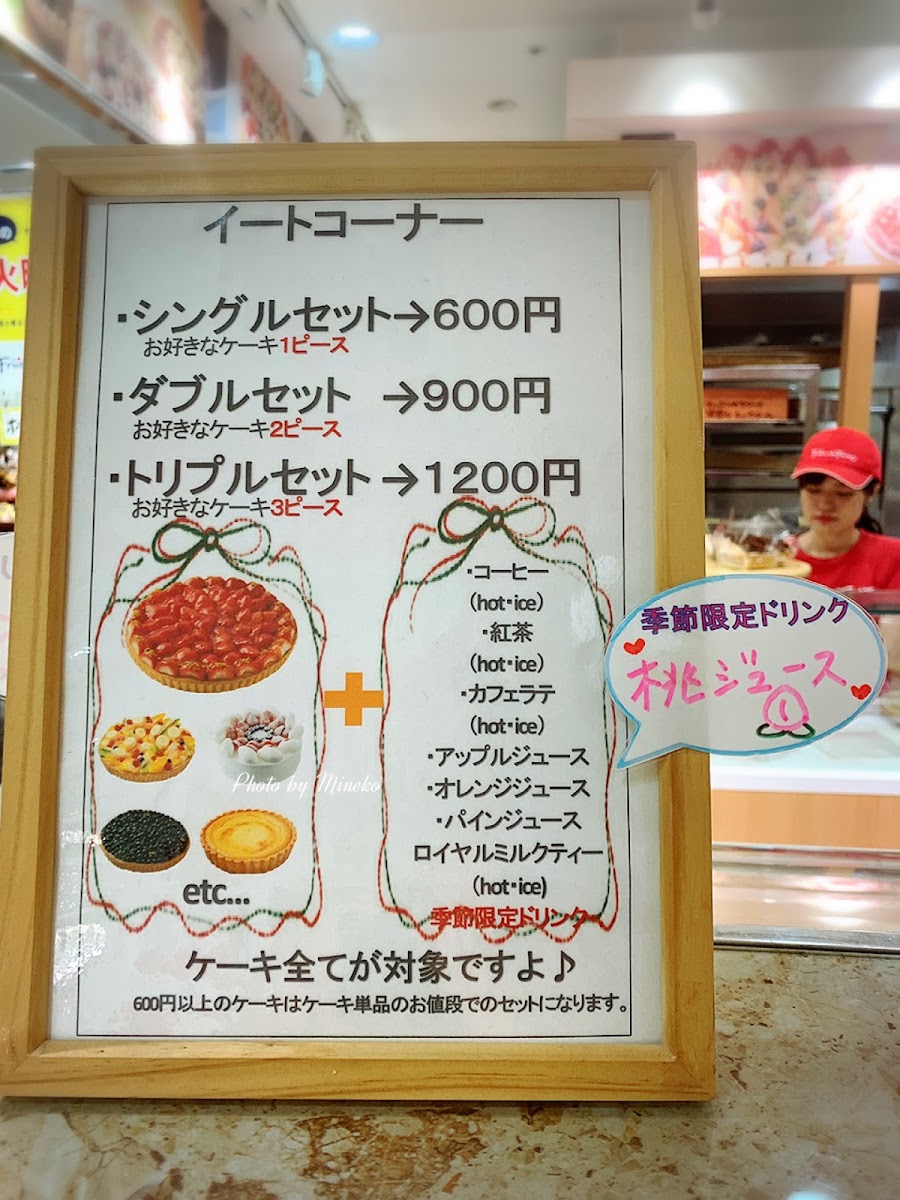 イートコーナー
・シングルセット→600円
お好きなケーキ1ピース
・ダブルセット →900円
お好きなケーキ2ピース
・トリプルセット →1200円
お好きなケーキ3ピース
・コーヒー
(hot・ice)
・紅茶
(hot・ice)
・カフェラテ
(hot・ice)
・アップルジュース
・オレンジジュース
・パインジュース
ロイヤルミルクティー
(hot・ice)
季節限定ドリンク
etc...
季節限定ドリンク
桃ジュース
Photo by Mineko
ケーキ全てが対象ですよ♪
600円以上のケーキはケーキ単品のお値段でのセットになります。